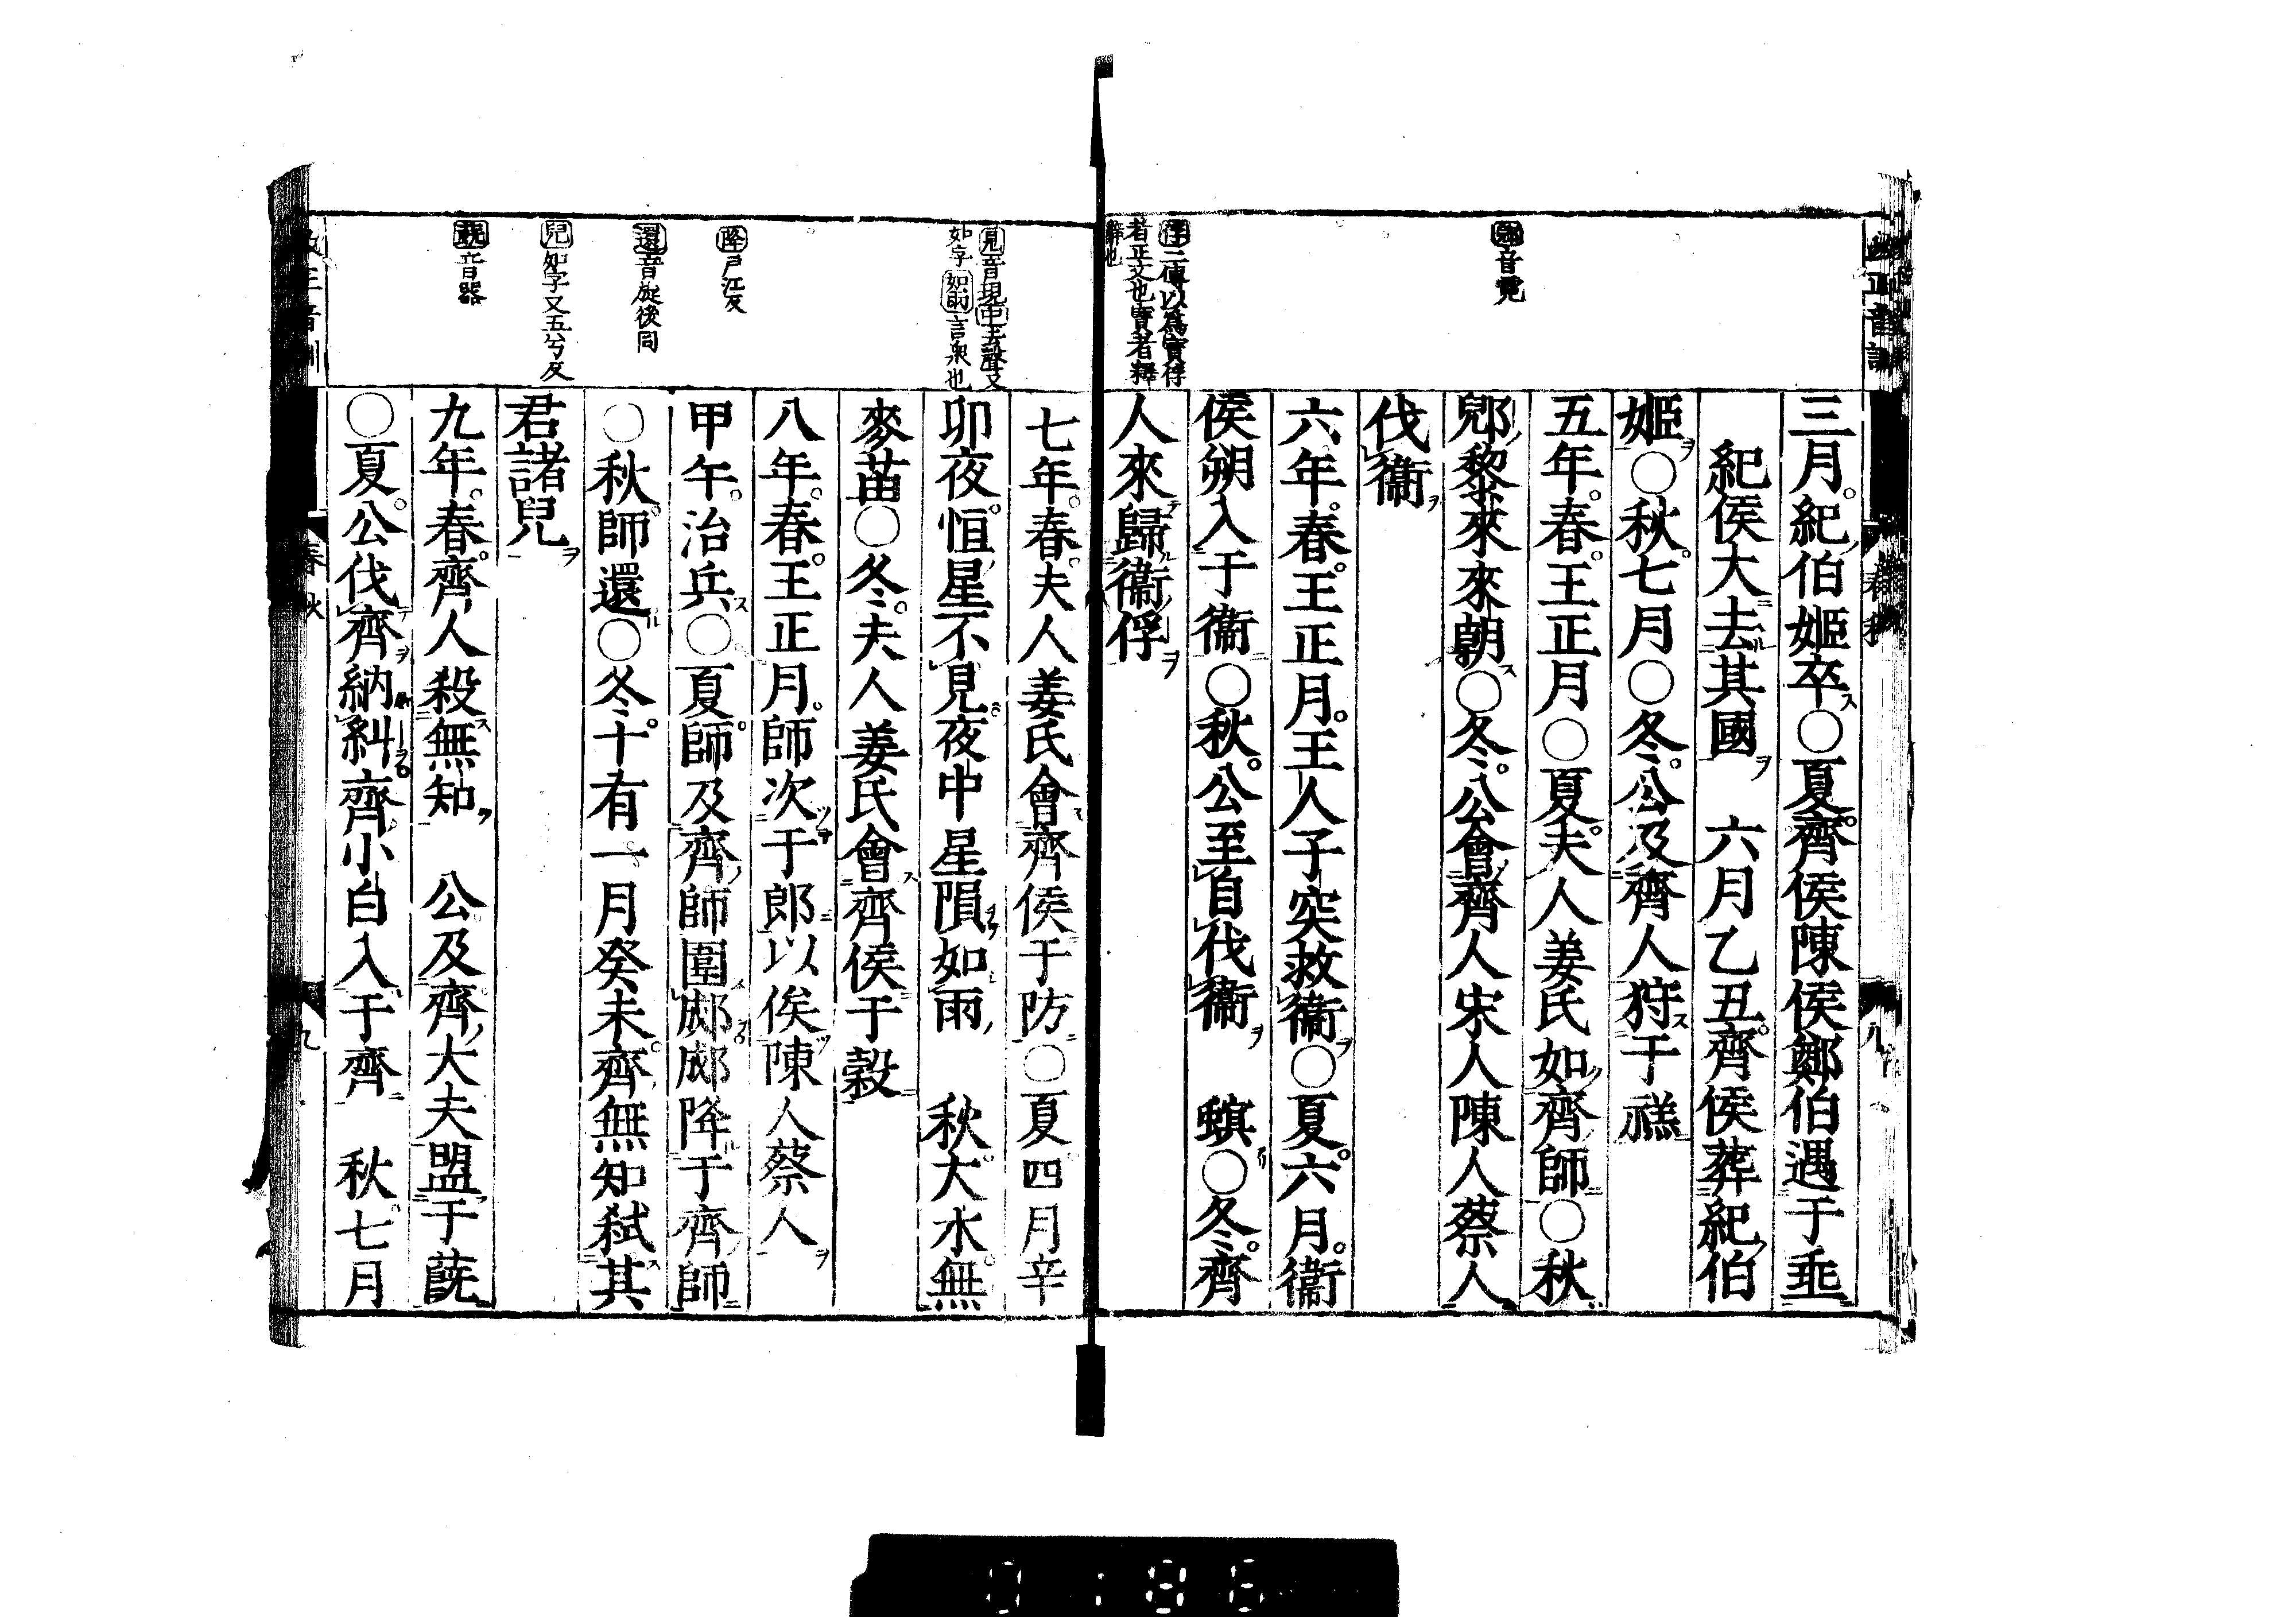 郳音霓
俘二傳以爲寳俘
者正文也寳者釋
辭也
三月紀伯姬卒○夏齊侯陳侯鄭伯遇于垂
紀侯大去其國　六月乙丑齊侯葬紀伯
姬○秋七月○冬公及齊人狩于禚
五年春王正月○夏夫人姜氏如齊師○秋
郳黎來來朝○冬公會齊人宋人陳人蔡人
伐衞
六年春王正月王人子突救衞○夏六月衞
侯朔入于衞○秋公至自伐衞　螟○冬齊
人來歸衞俘
春秋
八
見音現中去聲又
如字如雨言衆也
降戸江反
還音旋後同
兒如字又五兮反
蔇音器
七年春夫人姜氏會齊侯于防○夏四月辛
卯夜恒星不見夜中星隕如雨　秋大水無
麥苗○冬夫人姜氏會齊侯于穀
八年春王正月師次于郎以俟陳人蔡人
甲午治兵○夏師及齊師圍郕郕降于齊師
○秋師還○冬十有一月癸未齊無知弑其
君諸兒
九年春齊人殺無知　公及齊大夫盟于蔇
○夏公伐齊納糾齊小白入于齊　秋七月
春秋
九